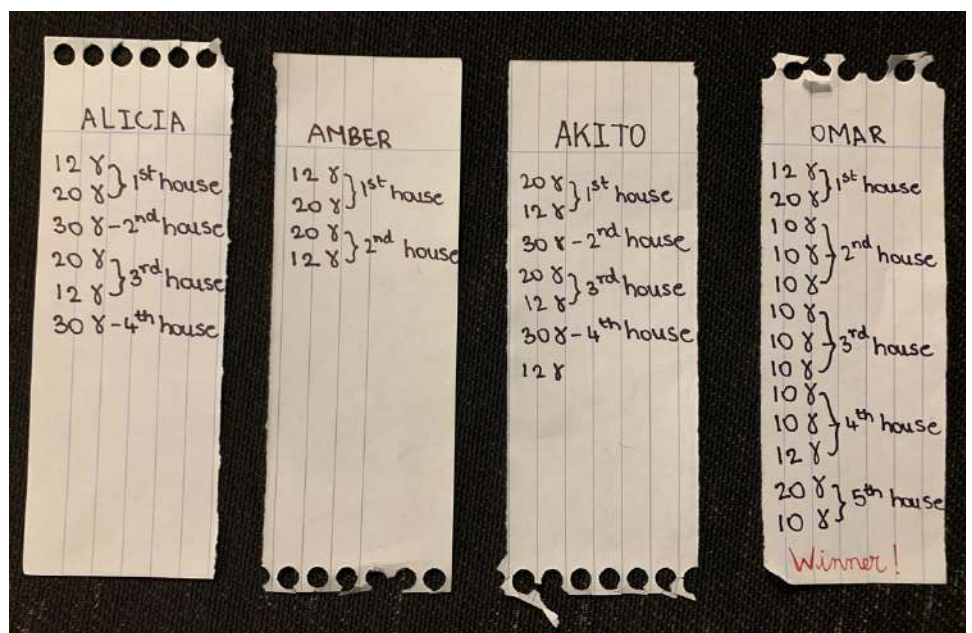 ALICIA
12 ४ } 1st house
20 ४
30 ४ - 2nd house
20 ४ } 3rd house
12 ४
30 ४ - 4th house
AMBER
12 ४ } 1st house
20 ४
20 ४ } 2nd house
12 ४
AKITO
20 ४ } 1st house
12 ४
30 ४ - 2nd house
20 ४ } 3rd house
12 ४
30 ४ - 4th house
12 ४
OMAR
12 ४ } 1st house
20 ४
10 ४
10 ४ } 2nd house
10 ४
10 ४
10 ४ } 3rd house
10 ४
10 ४
10 ४ } 4th house
12 ४
20 ४ } 5th house
10 ४
Winner!